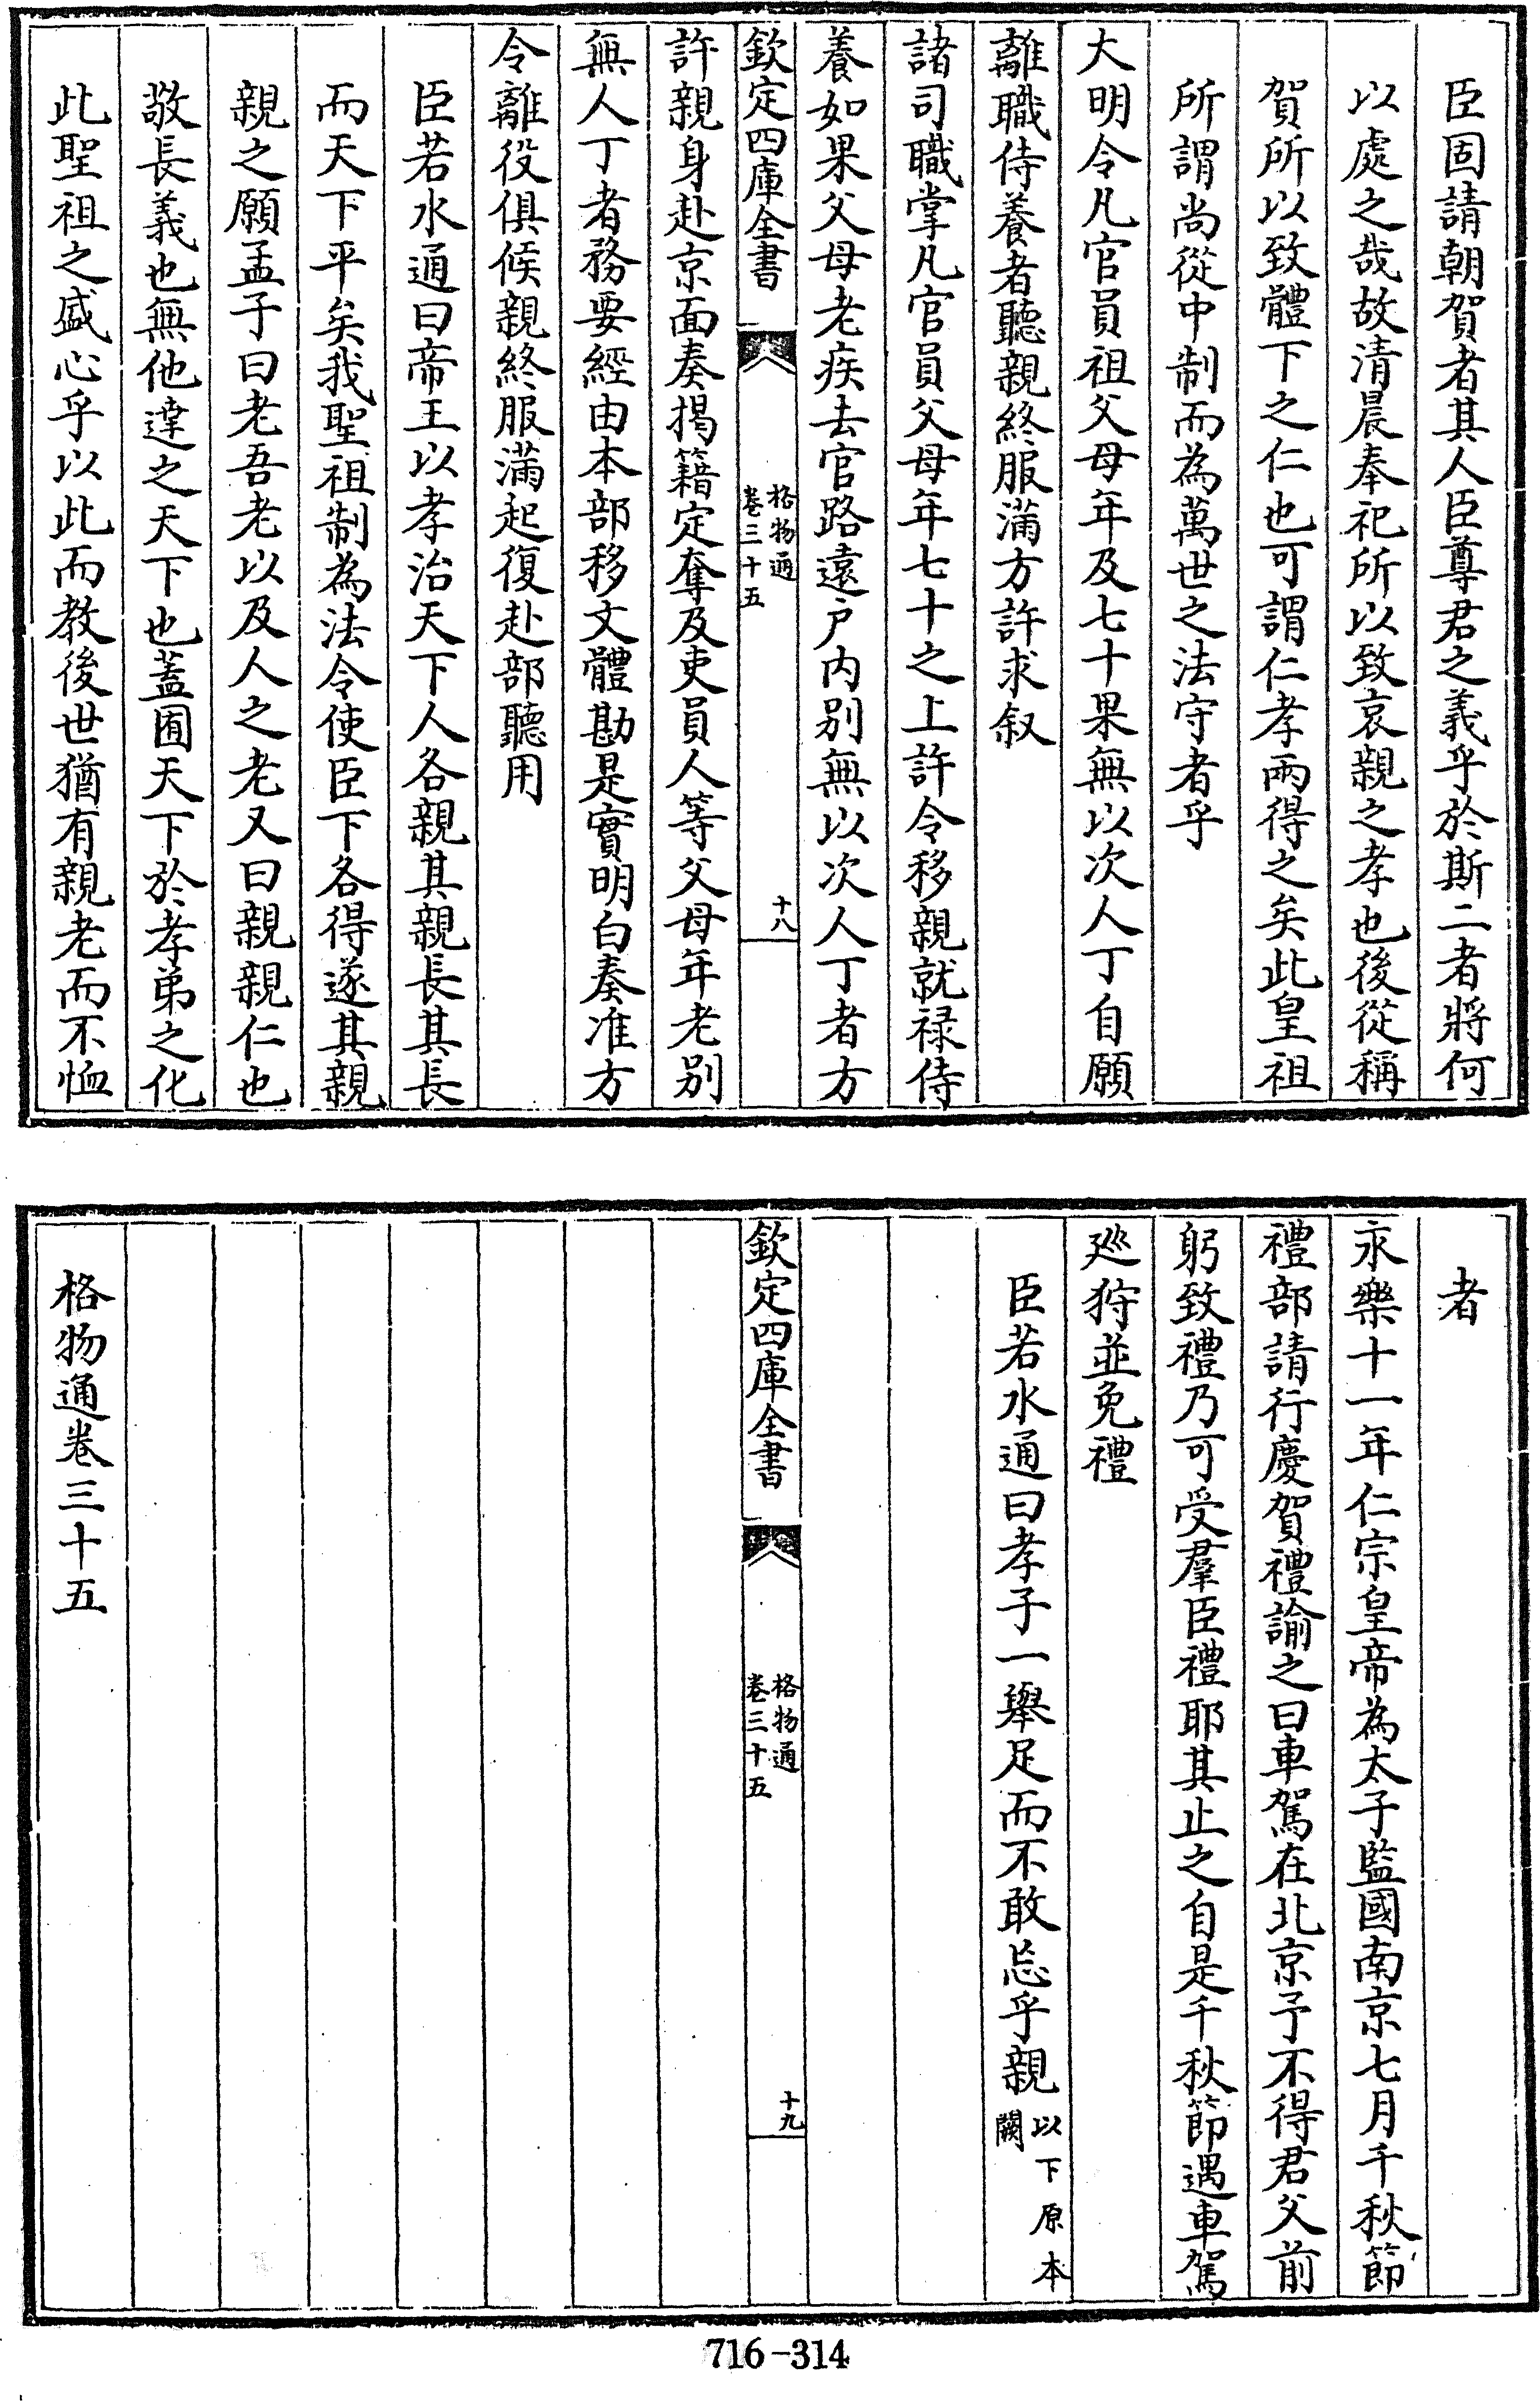 臣固請朝賀者其人臣尊君之義乎於斯二者將何
以處之哉故清晨奉祀所以致哀親之孝也後從稱
賀所以致體下之仁也可謂仁孝兩得之矣此皇祖
所謂尚從中制而為萬世之法守者乎
大明令凡官員祖父母年及七十果無以次人丁自願
離職侍養者聽親終服滿方許求叙
諸司職掌凡官員父母年七十之上許令移親就禄侍
養如果父母老疾去官路遠户内别無以次人丁者方
欽定四庫全書
格物通
卷三十五
十八
許親身赴京面奏揭籍定奪及吏員人等父母年老别
無人丁者務要經由本部移文體勘是實明白奏准方
令離役俱候親終服滿起復赴部聽用
臣若水通曰帝王以孝治天下人各親其親長其長
而天下平矣我聖祖制為法令使臣下各得遂其親
親之願孟子曰老吾老以及人之老又曰親親仁也
敬長義也無他達之天下也蓋囿天下於孝弟之化
此聖祖之盛心乎以此而教後世猶有親老而不恤
者
永樂十一年仁宗皇帝為太子監國南京七月千秋節
禮部請行慶賀禮諭之曰車駕在北京予不得君父前
躬致禮乃可受羣臣禮耶其止之自是千秋節遇車駕
廵狩並免禮
臣若水通曰孝子一舉足而不敢忘乎親以下原本
闕
欽定四庫全書
格物通
卷三十五
十九
格物通卷三十五
716-314